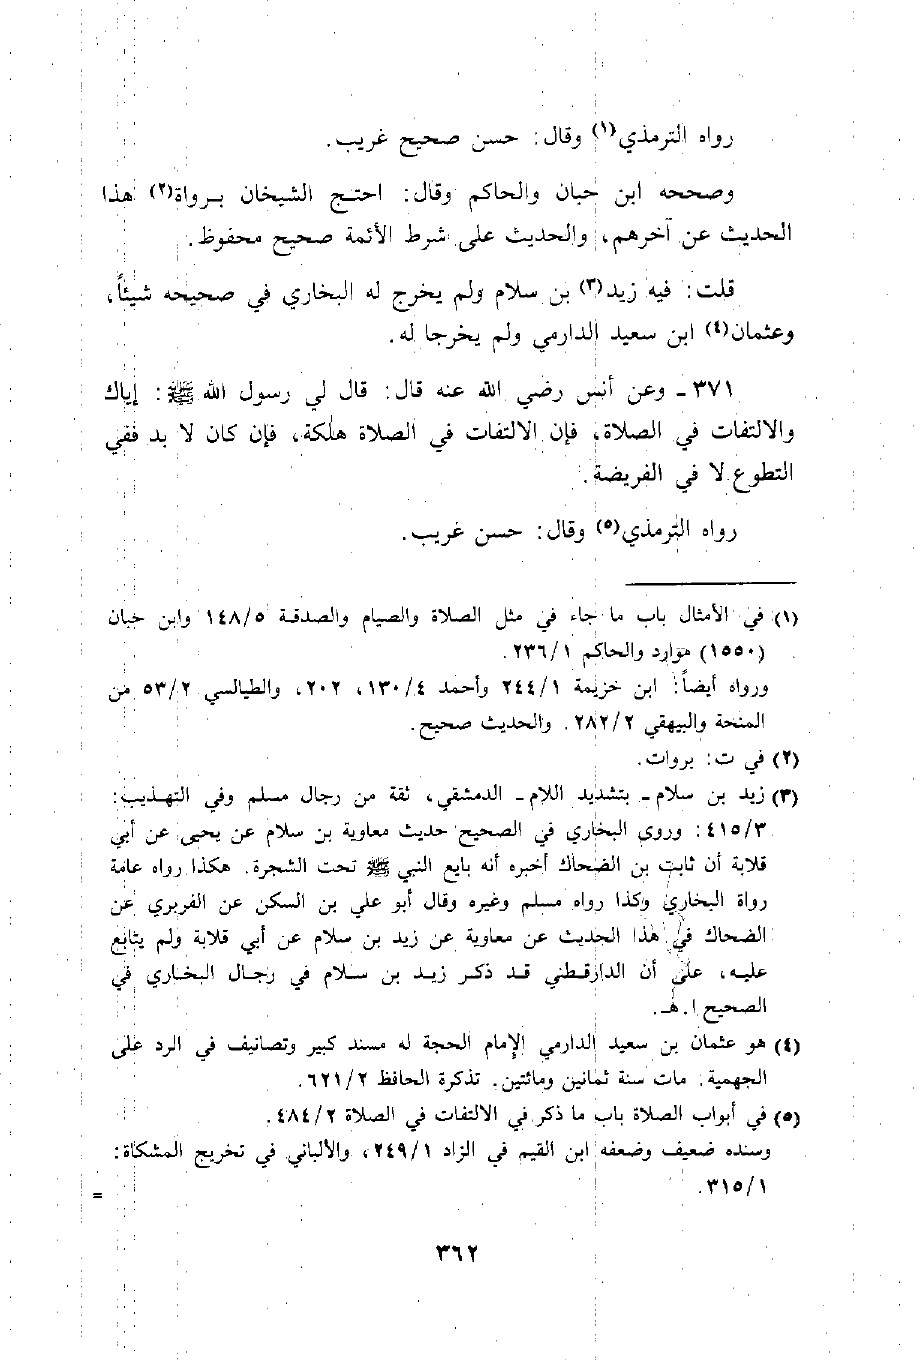 رواه الترمذي(١) وقال: حسن صحيح غريب.
وصححه ابن حبان والحاكم وقال: احتج الشيخان برواة(٢) هذا
الحديث عن آخرهم، والحديث على شرط الأئمة صحيح محفوظ.
قلت: فيه زيد(٣) بن سلام ولم يخرج له البخاري في صحيحه شيئاً،
وعثمان(٤) ابن سعيد الدارمي ولم يخرجا له.
٣٧١ - وعن أنس رضي الله عنه قال: قال لي رسول الله ﷺ: إياك
والالتفات في الصلاة، فإن الالتفات في الصلاة هلكة، فإن كان لا بد ففي
التطوع لا في الفريضة.
رواه الترمذي(٥) وقال: حسن غريب.
(١) في الأمثال باب ما جاء في مثل الصلاة والصيام والصدقة ١٤٨/٥ وابن حبان
(١٥٥٠) موارد والحاكم ٢٣٦/١.
ورواه أيضاً: ابن خزيمة ٢٤٤/١ وأحمد ١٣٠/٤، ٢٠٢، والطيالسي ٥٣/٢ من
المنحة والبيهقي ٢٨٢/٢. والحديث صحيح.
(٢) في ت: بروات.
(٣) زيد بن سلام - بتشديد اللام - الدمشقي، ثقة من رجال مسلم وفي التهذيب:
٤١٥/٣: وروى البخاري في الصحيح حديث معاوية بن سلام عن يحيى عن أبي
قلابة أن ثابت بن الضحاك أخبره أنه بايع النبي ﷺ تحت الشجرة. هكذا رواه عامة
رواة البخاري وكذا رواه مسلم وغيره وقال أبو علي بن السكن عن الفربري عن
الضحاك في هذا الحديث عن معاوية عن زيد بن سلام عن أبي قلابة ولم يتابع
عليه، على أن الدارقطني قد ذكر زيد بن سلام في رجال البخاري في
الصحيح ا. هـ.
(٤) هو عثمان بن سعيد الدارمي الإمام الحجة له مسند كبير وتصانيف في الرد على
الجهمية. مات سنة ثمانين ومائتين. تذكرة الحافظ ٦٢١/٢.
(٥) في أبواب الصلاة باب ما ذكر في الالتفات في الصلاة ٤٨٤/٢.
وسنده ضعيف وضعفه ابن القيم في الزاد ٢٤٩/١، والألباني في تخريج المشكاة:
٣١٥/١.
=
٣٦٢